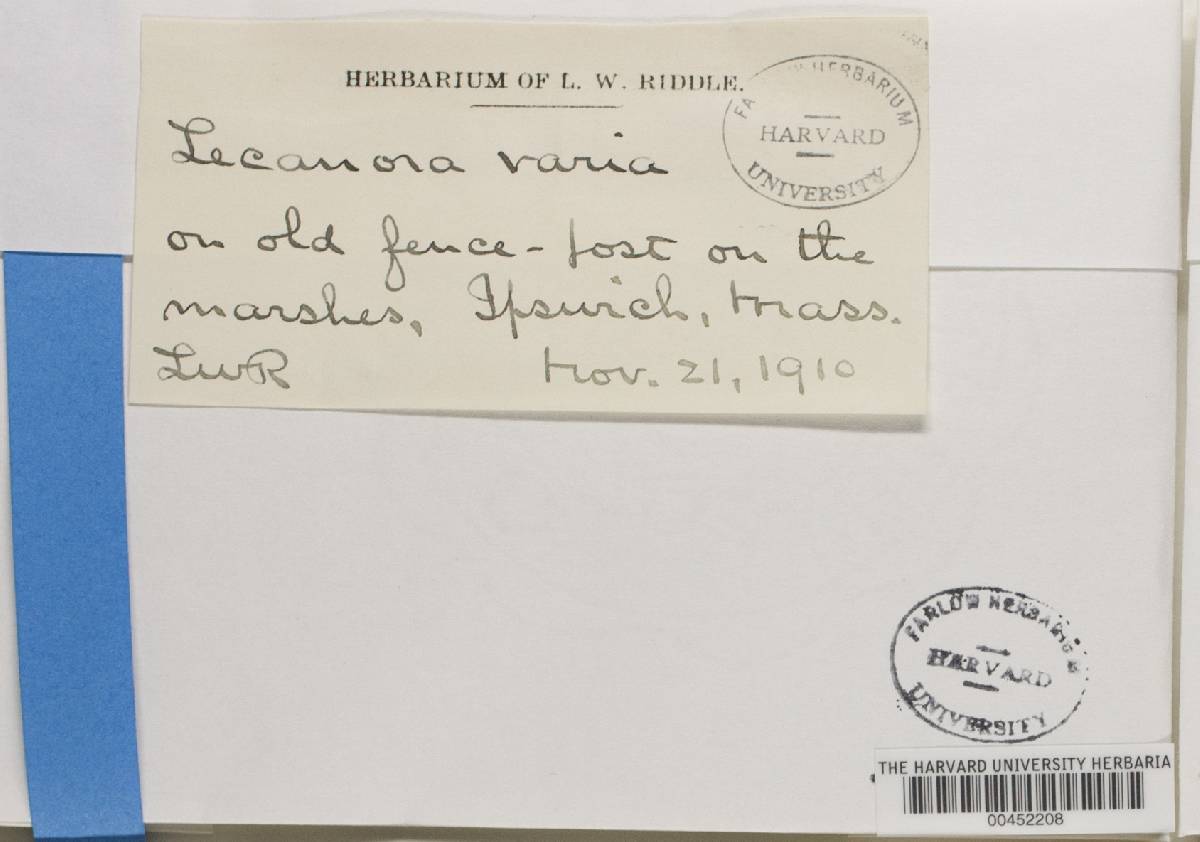 HERBARIUM OF L. W. RIDDLE.
FARLOW HERBARIUM
HARVARD
UNIVERSITY
Lecanora varia
on old fence-post on the
marshes, Ipswich, Mass.
LWR Nov. 21, 1910
FARLOW HERBARIUM
HARVARD
UNIVERSITY
THE HARVARD UNIVERSITY HERBARIA
00452208